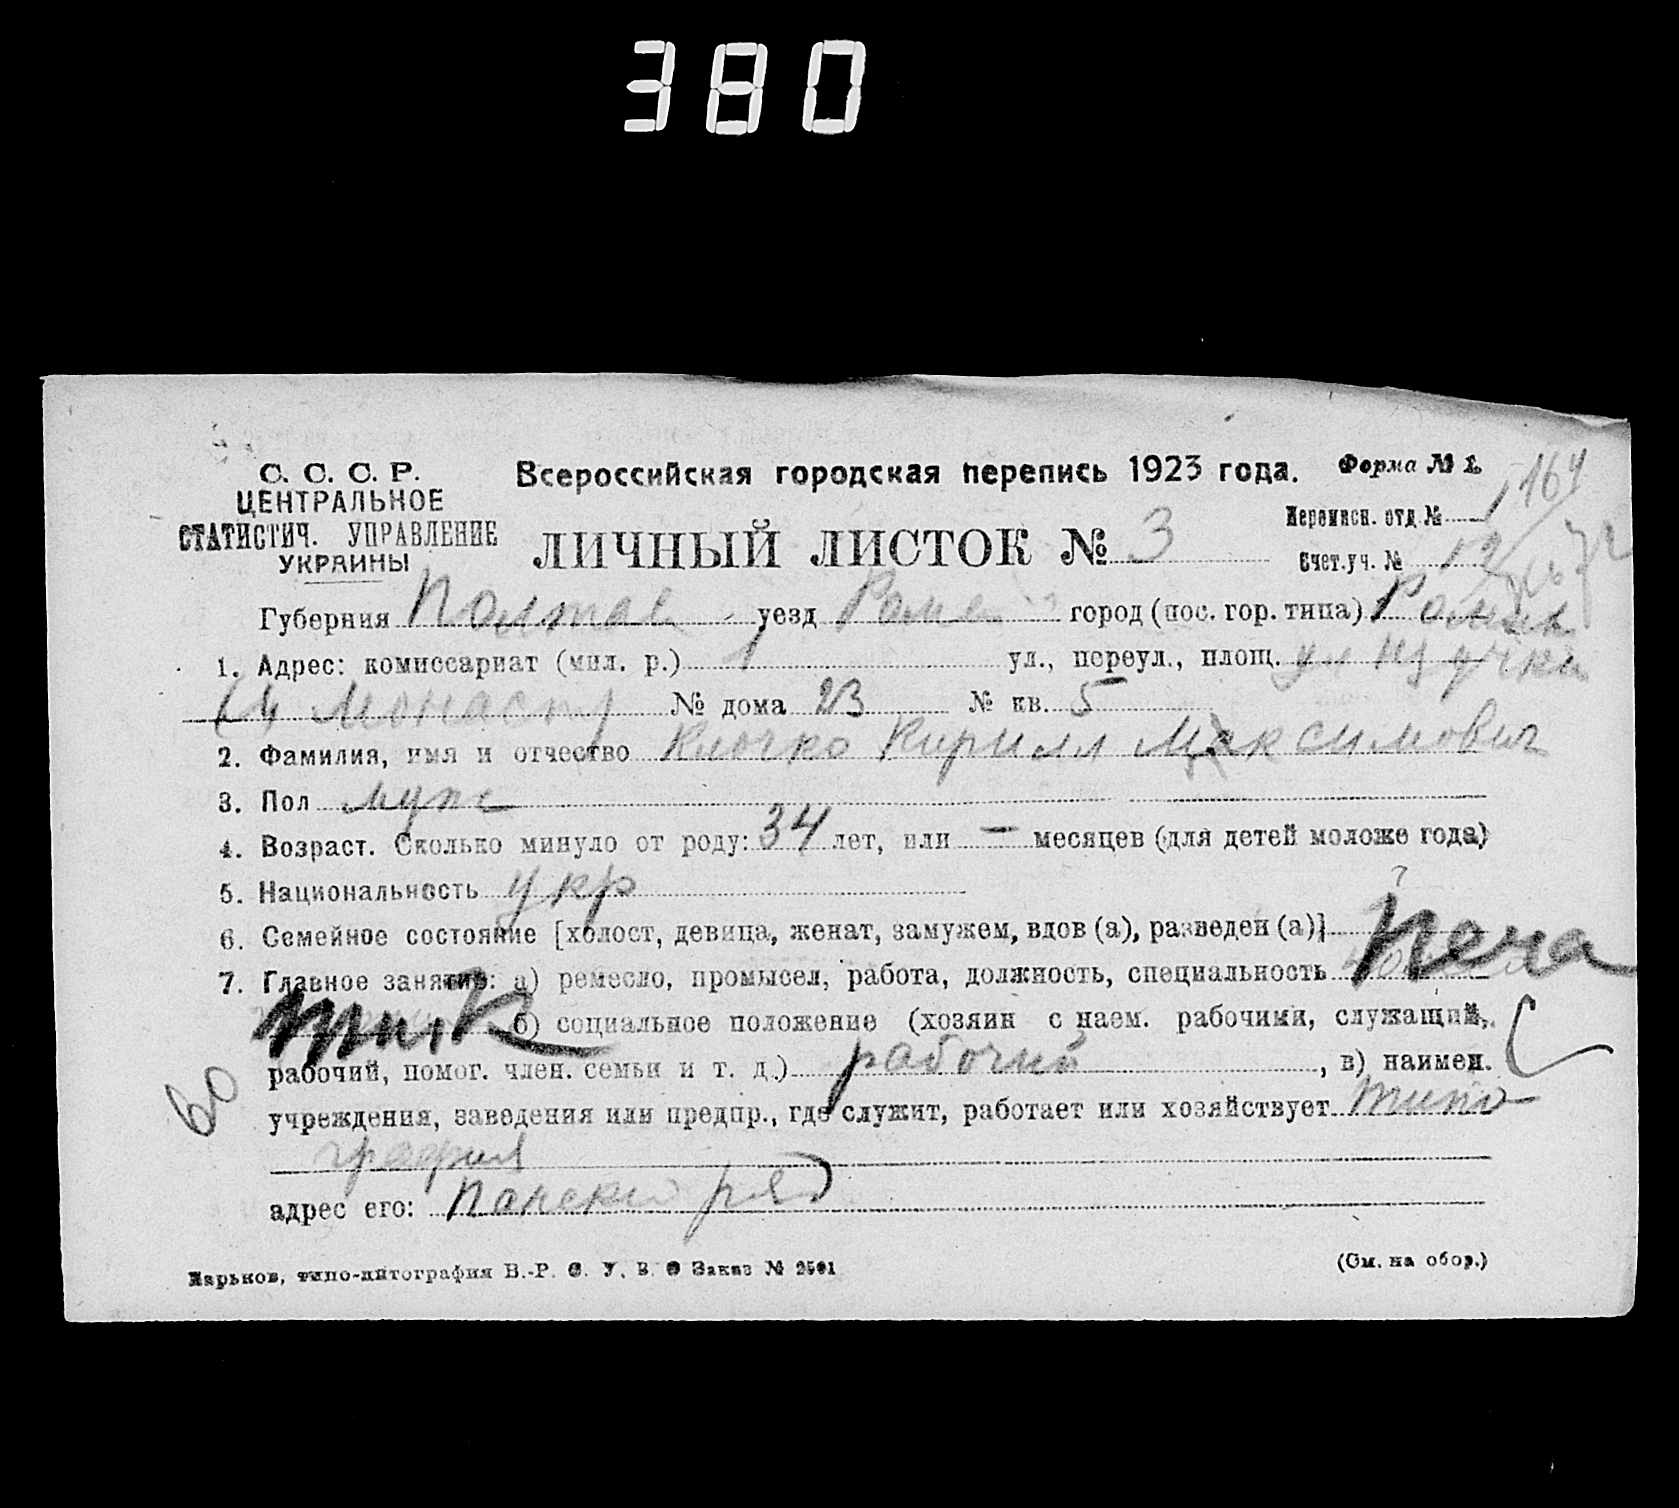 380
С. С. С. Р.
ЦЕНТРАЛЬНОЕ
СТАТИСТИЧ. УПРАВЛЕНИЕ
УКРАИНЫ
Всероссийская городская перепись 1923 года.
Форма № 1.
164
ЛИЧНЫЙ ЛИСТОК № 3
Переписн. отд. № 1
Счет. уч. №
Губерния Полтав уезд Роме город (пос. гор. типа) Ромен
1. Адрес: комиссариат (мил. р.) 1 ул., переул., площ. ул
Монаст № дома 23 № кв. 5
2. Фамилия, имя и отчество Клочко Кирилл Максимович
3. Пол муж
4. Возраст. Сколько минуло от роду: 34 лет, или — месяцев (для детей моложе года)
5. Национальность укр
6. Семейное состояние [холост, девица, женат, замужем, вдов (а), разведен (а)]
7. Главное занятие: а) ремесло, промысел, работа, должность, специальность Печа
тник б) социальное положение (хозяин с наем. рабочими, служащий,
рабочий, помог. член. семьи и т. д.) рабочий , в) наимен.
учреждения, заведения или предпр., где служит, работает или хозяйствует типо
графия
адрес его: ряд
Харьков, типо-литография В.-Р. С. У. В. О Заказ № 2591
(См. на обор.)